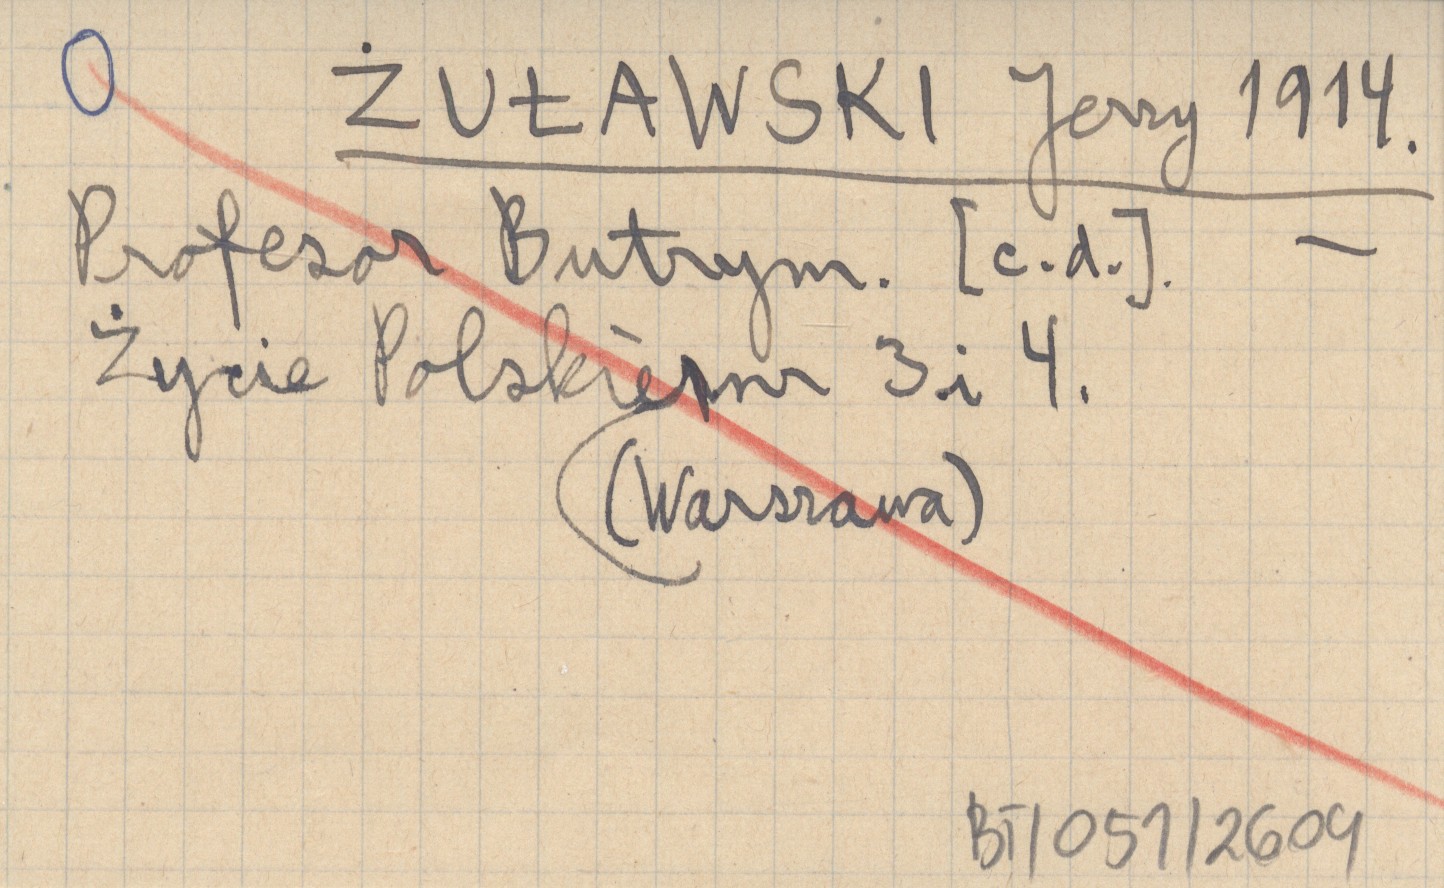 0
ŻUŁAWSKI Jerzy 1914.
Profesor Butrym. [c.d.]. —
Życie Polskie, nr 3 i 4.
(Warszawa)
BT/051/2609